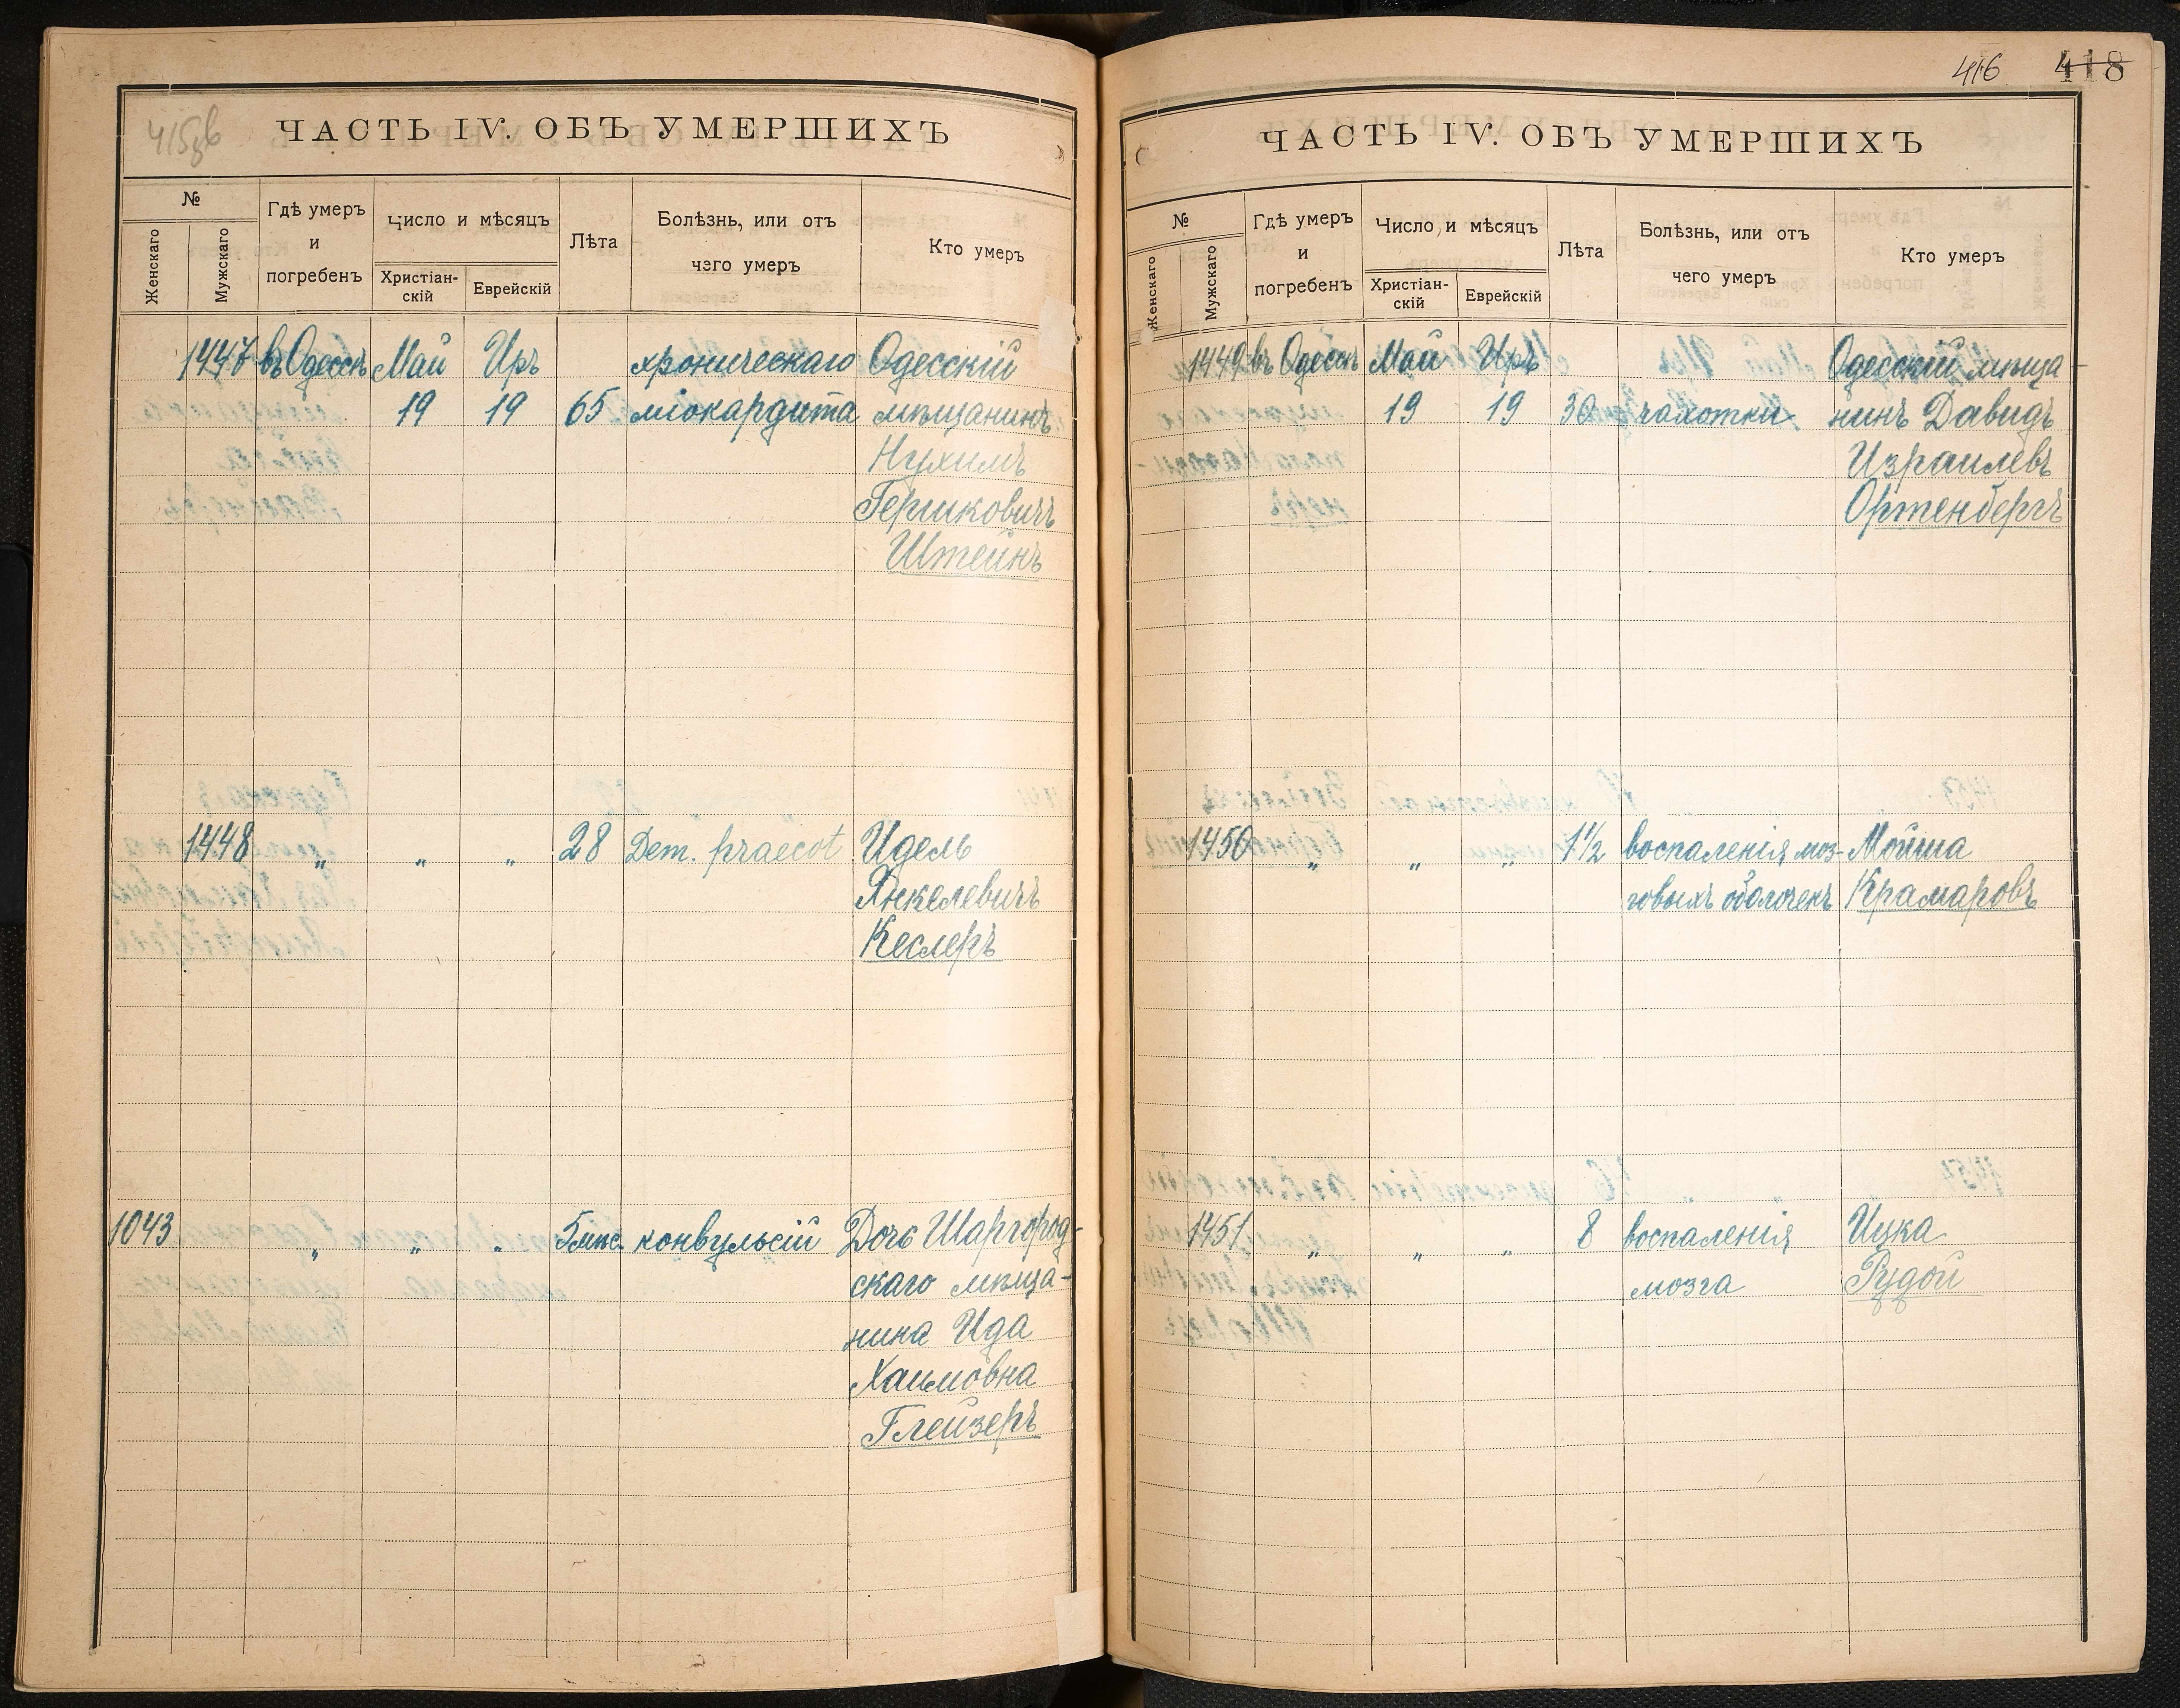 415об
ЧАСТЬ IV. ОБЪ УМЕРШИХЪ
№
Женскаго
Мужскаго
Гдѣ умеръ и погребенъ
Число и мѣсяцъ
Христіан-
скій
Еврейскій
Лѣта
Болѣзнь, или отъ
чего умеръ
Кто умеръ
1447 въ Одессѣ Май Иръ хроническаго Одесскій
19 19 65 міокардита мѣщанинъ
Нухимъ
Гершковичъ
Штейнъ
1448 „ „ „ 28 Dem. praecot Идель
Янкелевичъ
Кеслеръ
1043 „ „ „ 5 мѣс. конвульсій Дочь Шаргород-
скаго мѣща-
нина Ида
Хаимовна
Глейзеръ
416 418
ЧАСТЬ IV. ОБЪ УМЕРШИХЪ
№
Женскаго
Мужскаго
Гдѣ умеръ и погребенъ
Число и мѣсяцъ
Христіан-
скій
Еврейскій
Лѣта
Болѣзнь, или отъ
чего умеръ
Кто умеръ
1449 въ Одессѣ Май Иръ Одесскій мѣща
19 19 30 чахотки нинъ Давидъ
Израилевъ
Ортенбергъ
1450 „ „ „ 1½ воспаленія моз- Мойша
говыхъ оболочекъ Крамаровъ
1451 „ „ „ 8 воспаленія Ицка
мозга Рудой